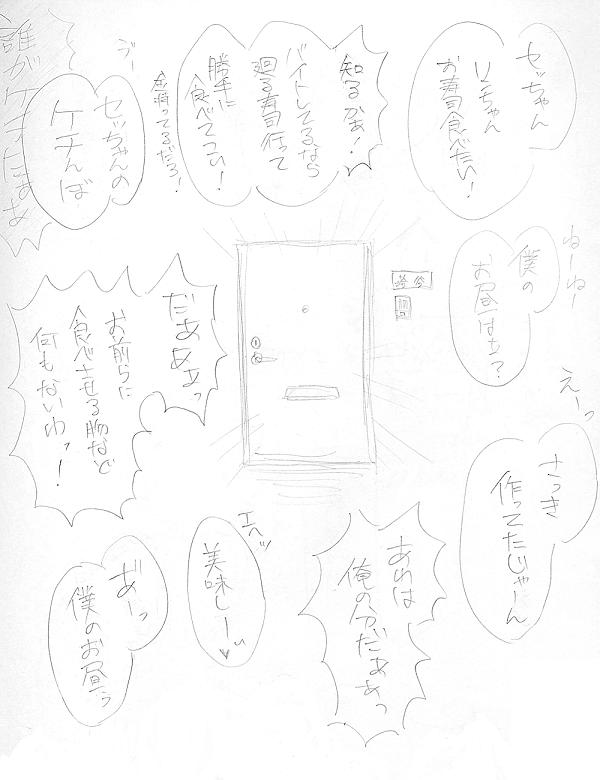 セッちゃん
リこちゃん
お寿司食べたい!
知るかぁ!
バイトしてるなら
廻る寿司行って
勝手に
食べてこい!
金持ってるだろ!
ブー
セッちゃんの
ケチんぼ
誰がケチだぁぁ
ねーねー
僕の
お昼は?
だぁぁぁっ
お前らに
食べさせる物など
何もないわッ!
えーっ
さっき
作ってたじゃーん
あれは
俺の分だぁぁっ
エヘッ
美味しー♥
あーっ
僕のお昼ぅ